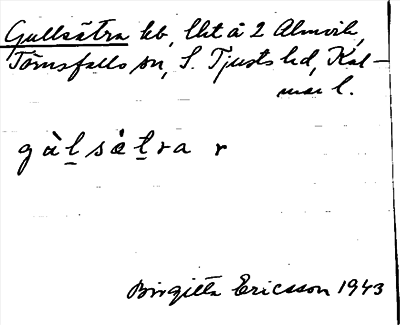 Gullsätra hb, lht å 2 Almvik,
Törnsfalls sn, S. Tjusts hd, Kal-
mar l.
gàḻsäṯra r
Birgitta Ericsson 1943